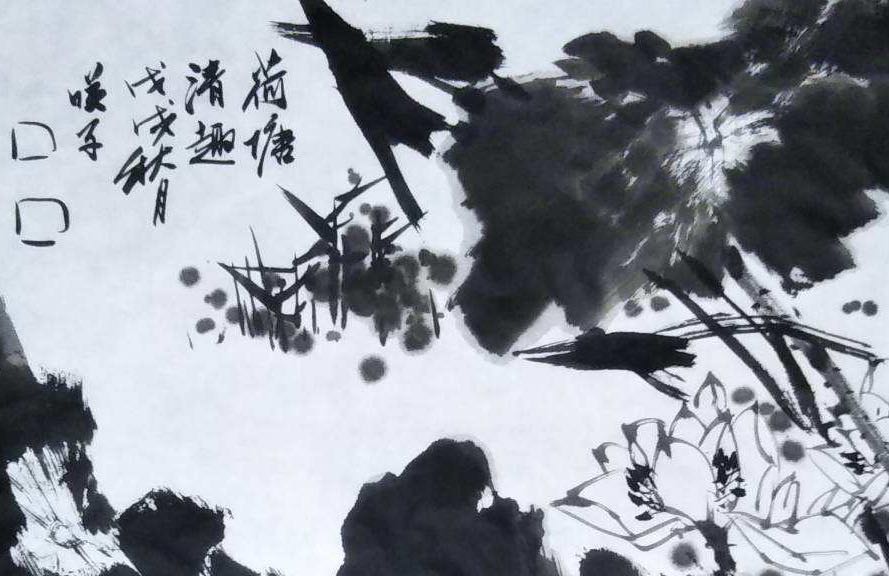 荷塘
清趣
戊戌秋月
子